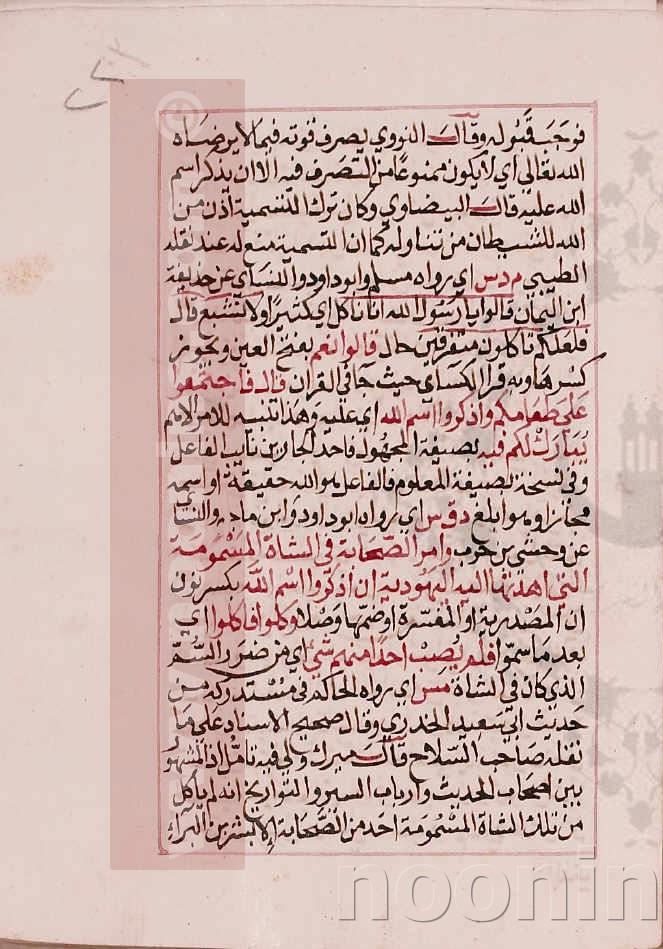 فوجب قبوله وقال النووي يصرف قوته فيما لا يرضاه
الله تعالى أي لا يكون ممنوعا من التصرف فيه الا ان يذكر اسم
الله عليه قال البيضاوي وكان ترك التسمية أذن من
الله للشيطان من تناوله كما ان التسمية منع له عند نقله
الطيبي م د س اي رواه مسلم وابو داود والنساي عن حذيفة
ابن اليمان قالوا يا رسول الله انا ناكل اي كثيرا ولا نشبع قال
فلعلكم تاكلون متفرقين حال قالوا نعم بفتح العين ويجوز
كسرها وبه قرا الكساي حيث جا في القران قال فاجتمعوا
على طعامكم واذكروا اسم الله اي عليه وهذا تنبيه للامر الاهم
يبارك لكم فيه بصيغة المجهول فاحد الجارين نايب الفاعل
وفي نسخة بصيغة المعلوم فالفاعل هو الله حقيقة او اسمه
مجازا وهو ابلغ د ق س اي رواه ابو داود وابن ماجه والنساي
عن وحشي بن حرب وامر الصحابة في الشاة المسمومة
التي اهدتها اليه اليهودية ان اذكروا اسم الله بكسر نون
ان المصدرية او المفسرة او ضمها وصلا وكلوا فاكلوا اي
بعد ما سموا فلم يصب احدا منهم شيء اي من ضرر السم
الذي كان في الشاة مس اي رواه الحاكم في مستدركه من
حديث ابي سعيد الخدري وقال صحيح الاسناد على ما
نقله صاحب السلاح قال ميرك ولي فيه تامل اذ المشهور
بين اصحاب الحديث وارباب السير والتواريخ انه لم ياكل
من تلك الشاة المسمومة احد من الصحابة إلا بشر بن البراء
noonin